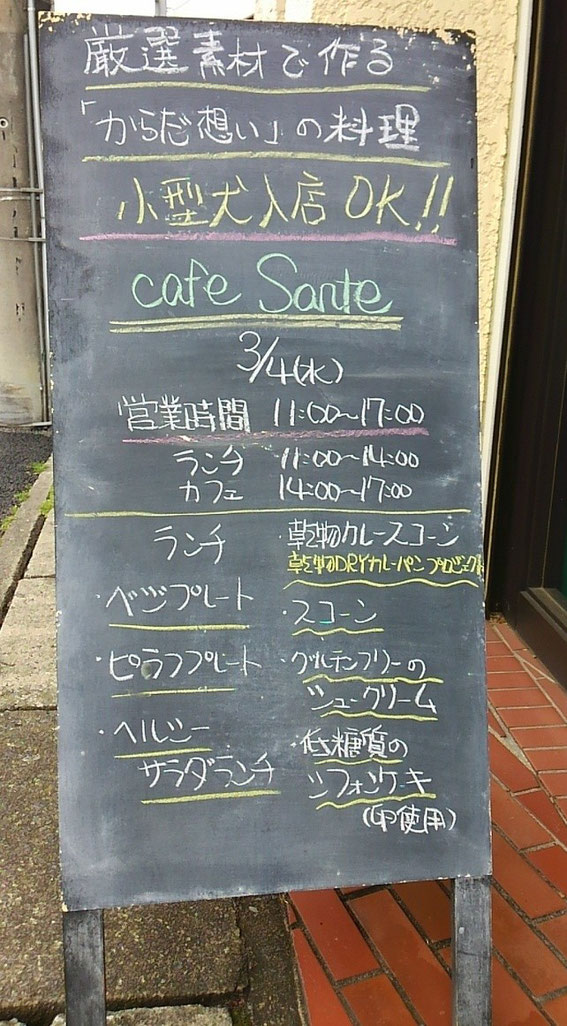 厳選素材で作る
「からだ想い」の料理
小型犬入店OK!!
cafe Sante
3/4(水)
営業時間 11:00～17:00
ランチ 11:00～14:00
カフェ 14:00～17:00
ランチ
・ベジプレート
・ピラフプレート
・ヘルシー
サラダランチ
・乾物カレースコーン
乾物DRYカレーパンプロジェクト
・スコーン
・グルテンフリーの
シュークリーム
・低糖質の
シフォンケーキ
(卵使用)